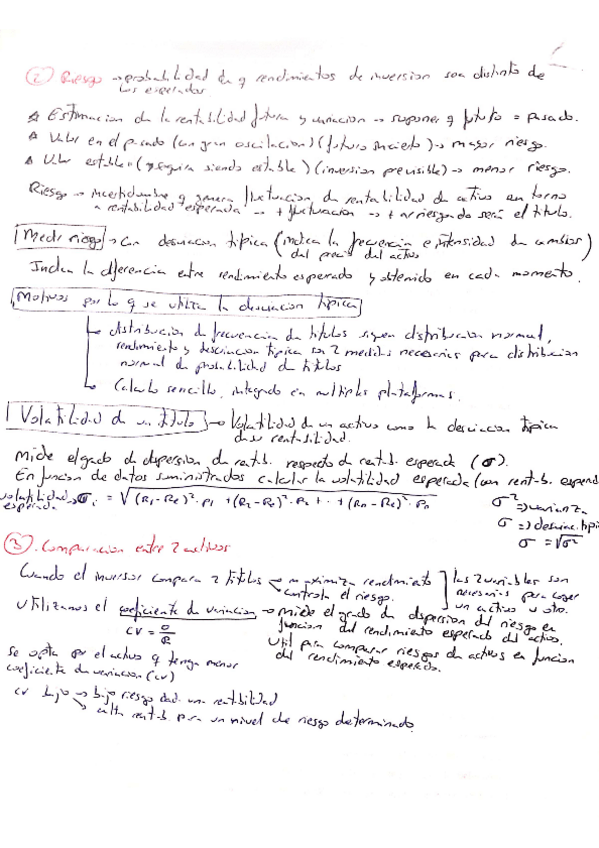 ② Riesgo → probabilidad de q rendimientos de inversion sea distinto de
los esperados.
* Estimacion de la rentabilidad futura y variacion → suponer q futuro = pasado.
* Valor en el pasado (con gran oscilacion) (futuro incierto) → mayor riesgo.
* Valor estable (y seguira siendo estable) (inversion previsible) → menor riesgo.
Riesgo → incertidumbre q genera fluctuacion de rentabilidad de activo en torno
a rentabilidad esperada → + fluctuación → + arriesgado será el titulo.
Medir riesgo → Con desviacion tipica (indica la frecuencia e intensidad de cambios)
del precio del activo
Indica la diferencia entre rendimiento esperado y obtenido en cada momento.
Motivos por lo q se utiliza la desviacion tipica
→ distribucion de frecuencia de titulos siguen distribucion normal,
rendimiento y desviacion tipica son 2 medidas necesarias para distribucion
normal de probabilidad de titulos
→ Calculo sencillo, integrado en multiples plataformas.
Volatilidad de un titulo → Volatilidad de un activo como la desviacion tipica
de su rentabilidad.
Mide el grado de dispersion de rentb. respecto de rentb. esperada (σ).
En funcion de datos suministrados calcular la volatilidad esperada (con rentb. esperad
volatilidad esperada → σi = √(R1-Re)²·p1 + (R2-Re)²·p2 + · + (Rn-Re)²·pn
σ² => varianza
σ => desviac. tipi
σ = √σ²
③. Comparacion entre 2 activos
Cuando el inversor compara 2 titulos → maximiza rendimiento
controla el riesgo.
las 2 variables son
necesarias para coger
un activo u otro.
Utilizamos el coeficiente de variacion → mide el grado de dispersion del riesgo en
funcion del rendimiento esperado del activo.
CV = σ/R
Util para comparar riesgos de activos en funcion
del rendimiento esperado.
Se opta por el activo q tenga menor
coeficiente de variacion (CV)
CV bajo → bajo riesgo dad. una rentbilidad
→ alta rentb. para un nivel de riesgo determinado.